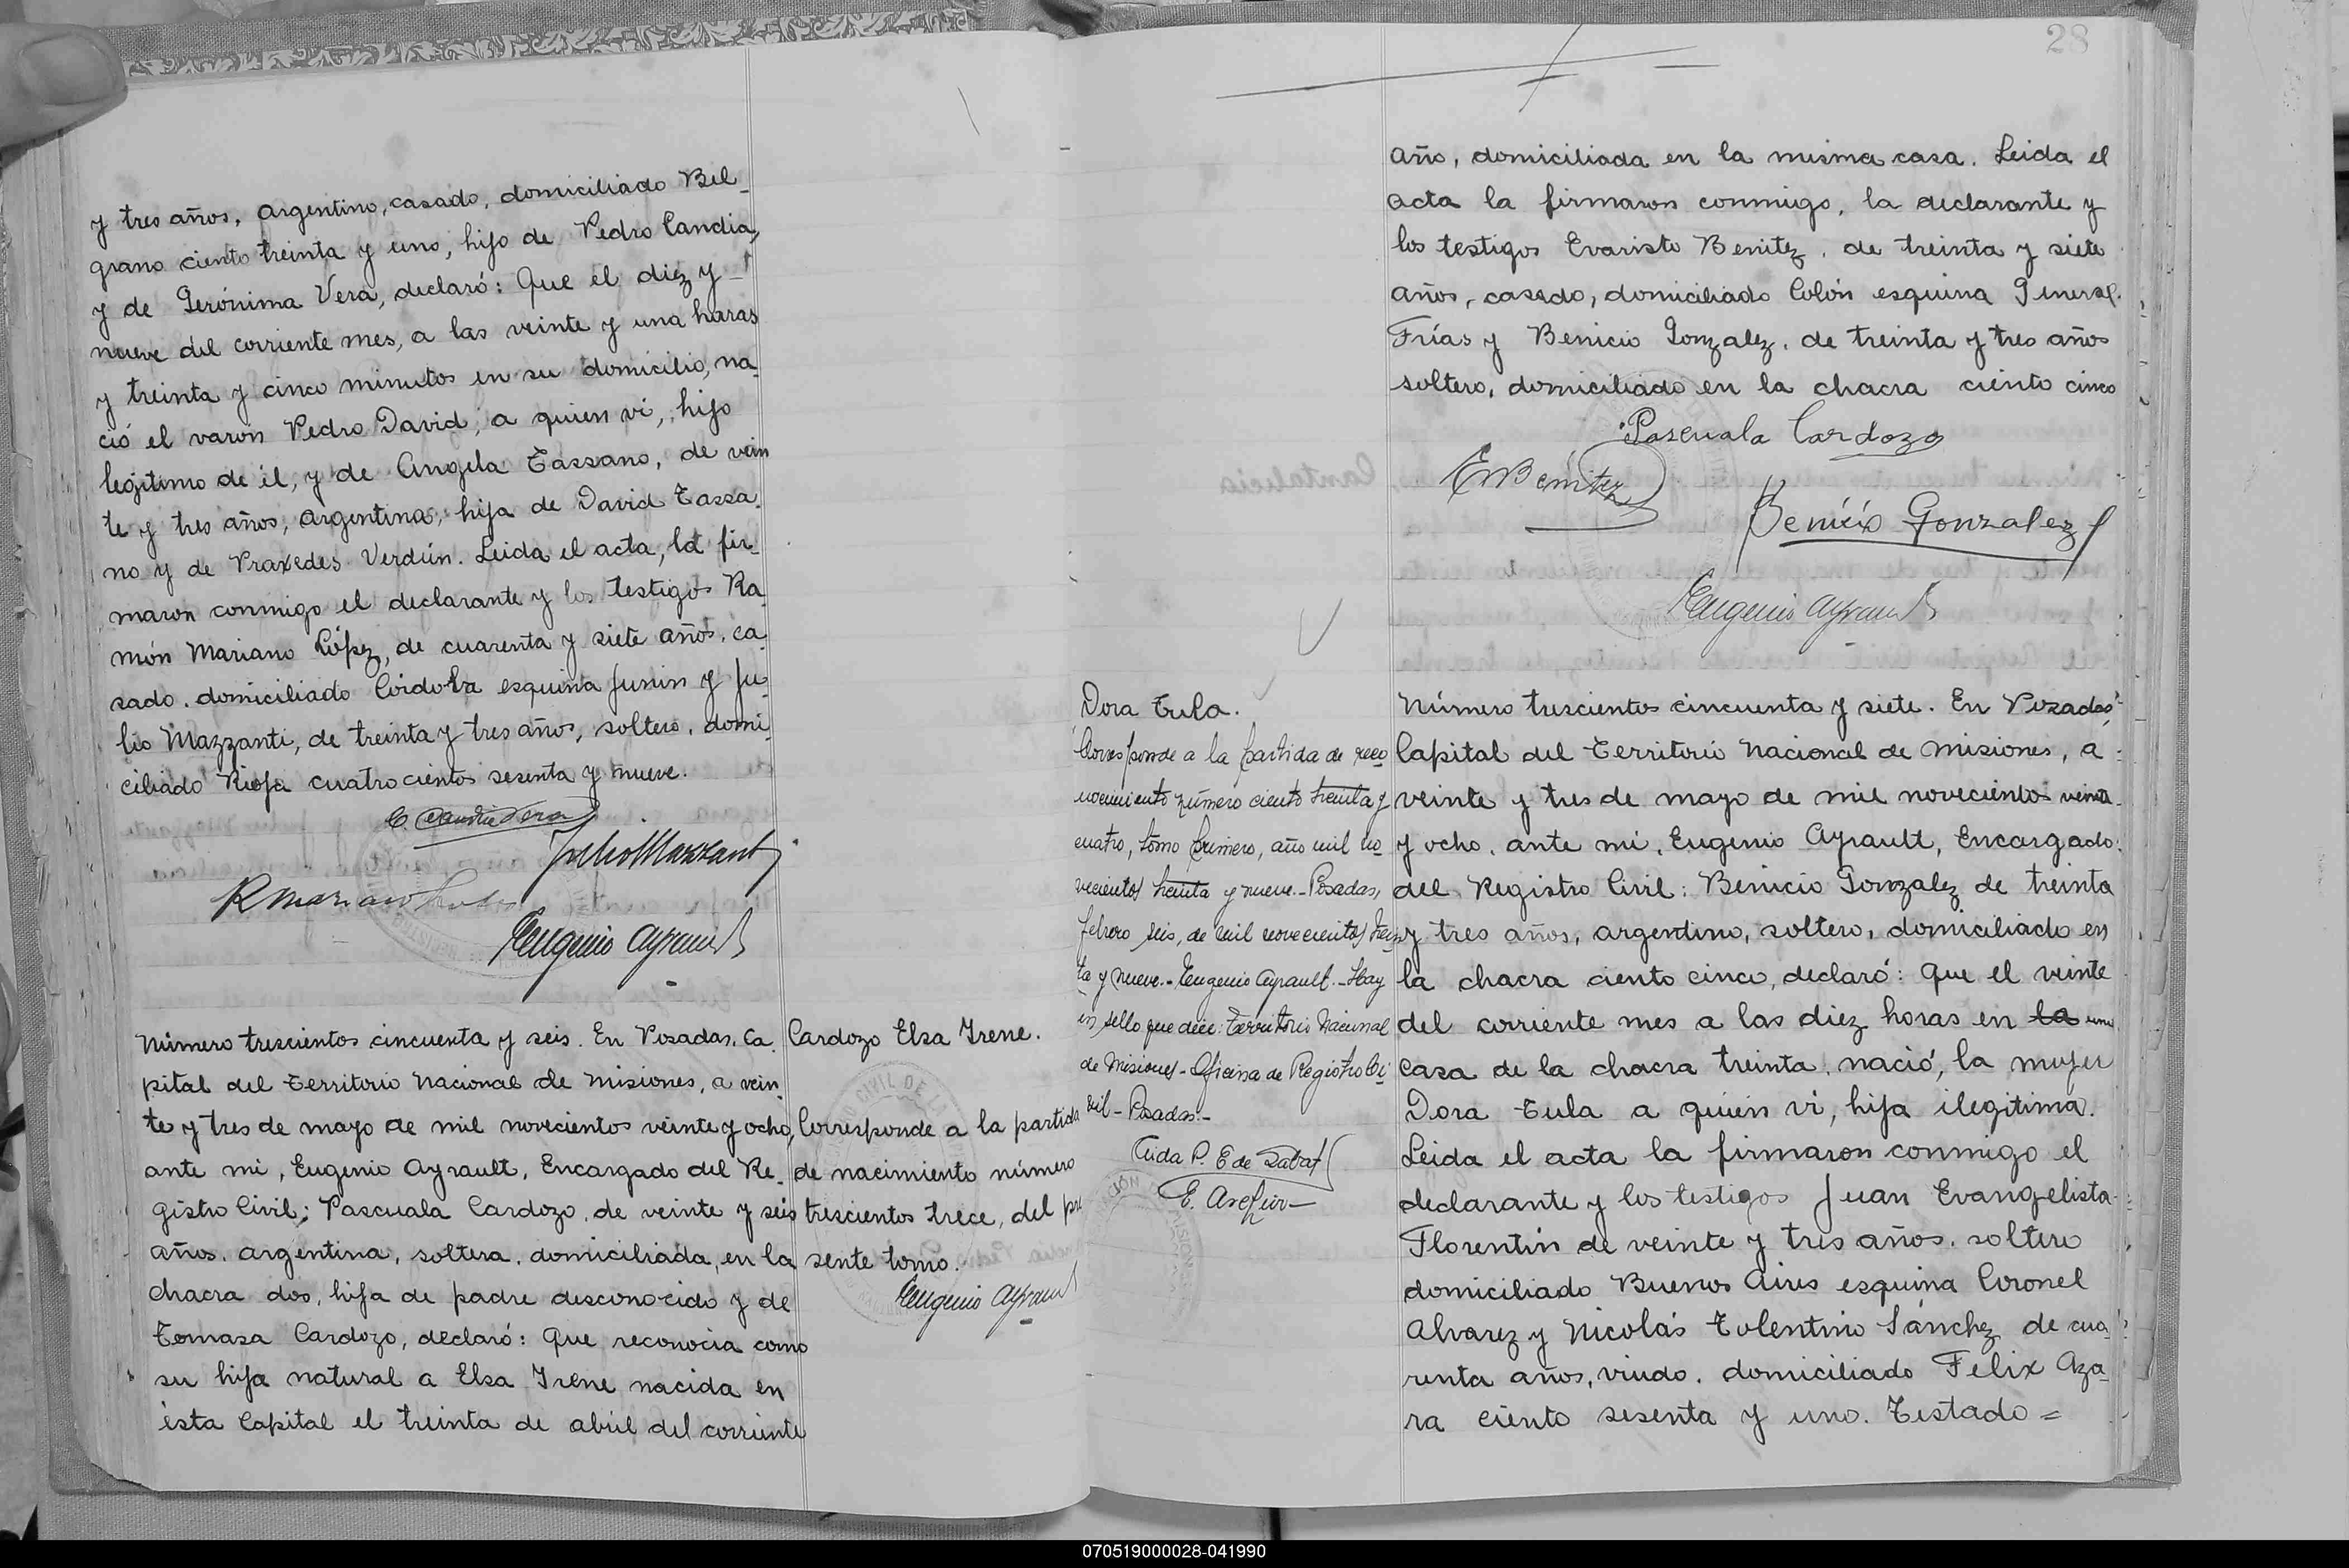 y tres años, argentino, casado, domiciliado Bel_
grano ciento treinta y uno, hijo de Pedro Candia,
y de Gerónima Vera, declaró: Que el diez y
nueve del corriente mes, a las veinte y una horas
y treinta y cinco minutos en su domicilio, na_
ció el varon Pedro David, a quien vi, hijo
legitimo de él, y de Angela Tassano, de vein
te y tres años, argentina, hija de David Tassa_
no y de Praxedes Verdún. Leida el acta, la fir_
maron conmigo el declarante y los testigos Ra_
món Mariano López, de cuarenta y siete años, ca_
sado, domiciliado Córdoba esquina Junin y Ju_
lio Mazzanti, de treinta y tres años, soltero, domi_
ciliado Rioja cuatrocientos sesenta y nueve.
C. Candia Vera
Julio Mazzanti
R Mariano
Eugenio Ayrault
Número trescientos cincuenta y seis. En Posadas, Ca_
pital del Territorio Nacional de Misiones, a vein_
te y tres de mayo de mil novecientos veinte y ocho,
ante mi, Eugenio Ayrault, Encargado del Re_
gistro Civil; Pascuala Cardozo, de veinte y seis
años, argentina, soltera, domiciliada, en la
chacra dos, hija de padre desconocido y de
Tomasa Cardozo, declaró: Que reconocia como
su hija natural a Elsa Irene nacida en
ésta Capital el treinta de abril del corriente
Cardozo Elsa Irene.
Corresponde a la partida
de nacimiento número
trescientos trece, del pre
sente tomo.
Eugenio Ayrault
28
año, domiciliada en la misma casa. Leida el
acta la firmaron conmigo, la declarante y
los testigos Evaristo Benitez, de treinta y siete
años, casado, domiciliado Colón esquina General
Frías y Benicio Gonzalez, de treinta y tres años
soltero, domiciliado en la chacra ciento cinco
Pascuala Cardozo
E Benitez
Benicio Gonzalez
Eugenio Ayrault
Dora Tula.
Corresponde a la partida de reco
nocimiento número ciento treinta y
cuatro, tomo primero, año mil no
vecientos treinta y nueve.- Posadas,
febrero seis, de mil novecientos trein
ta y nueve.- Eugenio Ayrault.- Hay
un sello que dice: Territorio Nacional
de Misiones - Oficina de Registro Ci
vil - Posadas.-
Número trescientos cincuenta y siete. En Posadas,
Capital del Territorio Nacional de Misiones, a
veinte y tres de mayo de mil novecientos veinte
y ocho, ante mi, Eugenio Ayrault, Encargado
del Registro Civil: Benicio Gonzalez de treinta
y tres años, argentino, soltero, domiciliado en
la chacra ciento cinco, declaró: Que el veinte
del corriente mes a las diez horas en la una
casa de la chacra treinta, nació, la mujer
Dora Tula a quien vi, hija ilegitima.
Leida el acta la firmaron conmigo el
declarante y los testigos Juan Evangelista
Florentin de veinte y tres años, soltero
domiciliado Buenos Aires esquina Coronel
Alvarez y Nicolás Tolentino Sánchez de cua_
renta años, viudo, domiciliado Felix Aza_
ra ciento sesenta y uno. Testado =
070519000028-041990